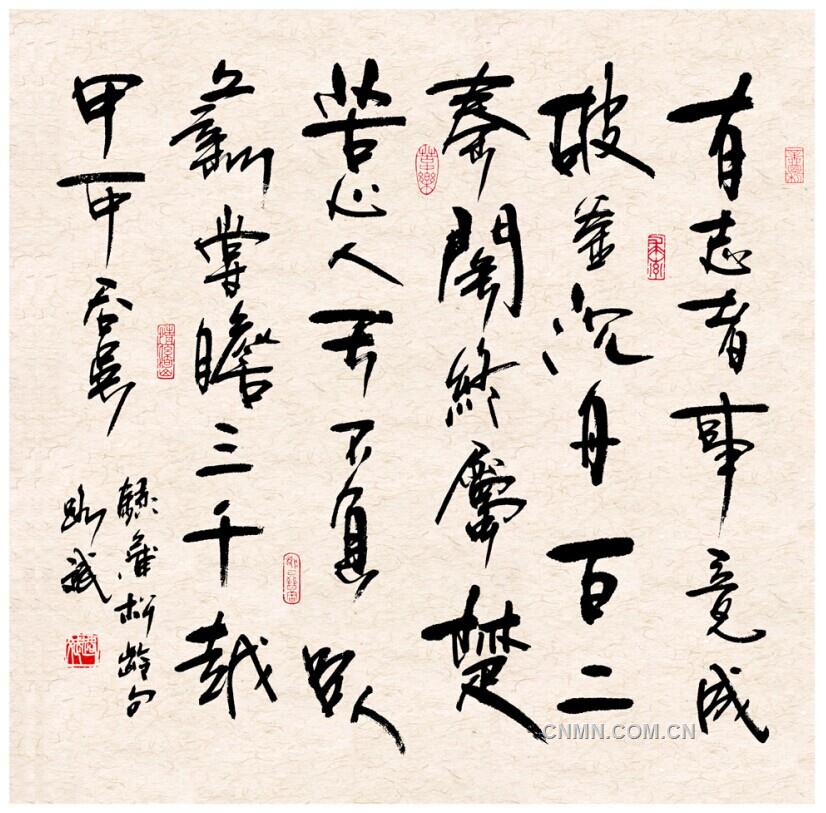 有志者事竟成
破釜沉舟百二
秦關終屬楚
苦心人天不負臥
薪嘗膽三千越
甲可吞吳
錄蒲松齡句
CNMN.COM.CN